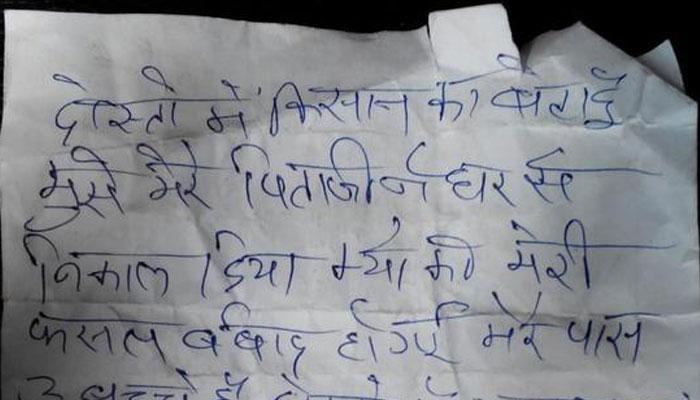 दोस्तो में किसान का बेटा हुँ
मुझे मेरे पिताजी ने घर से
निकाल दिया क्यो की मेरी
फसल बर्बाद होगई मेरे पास
3 बच्चे है